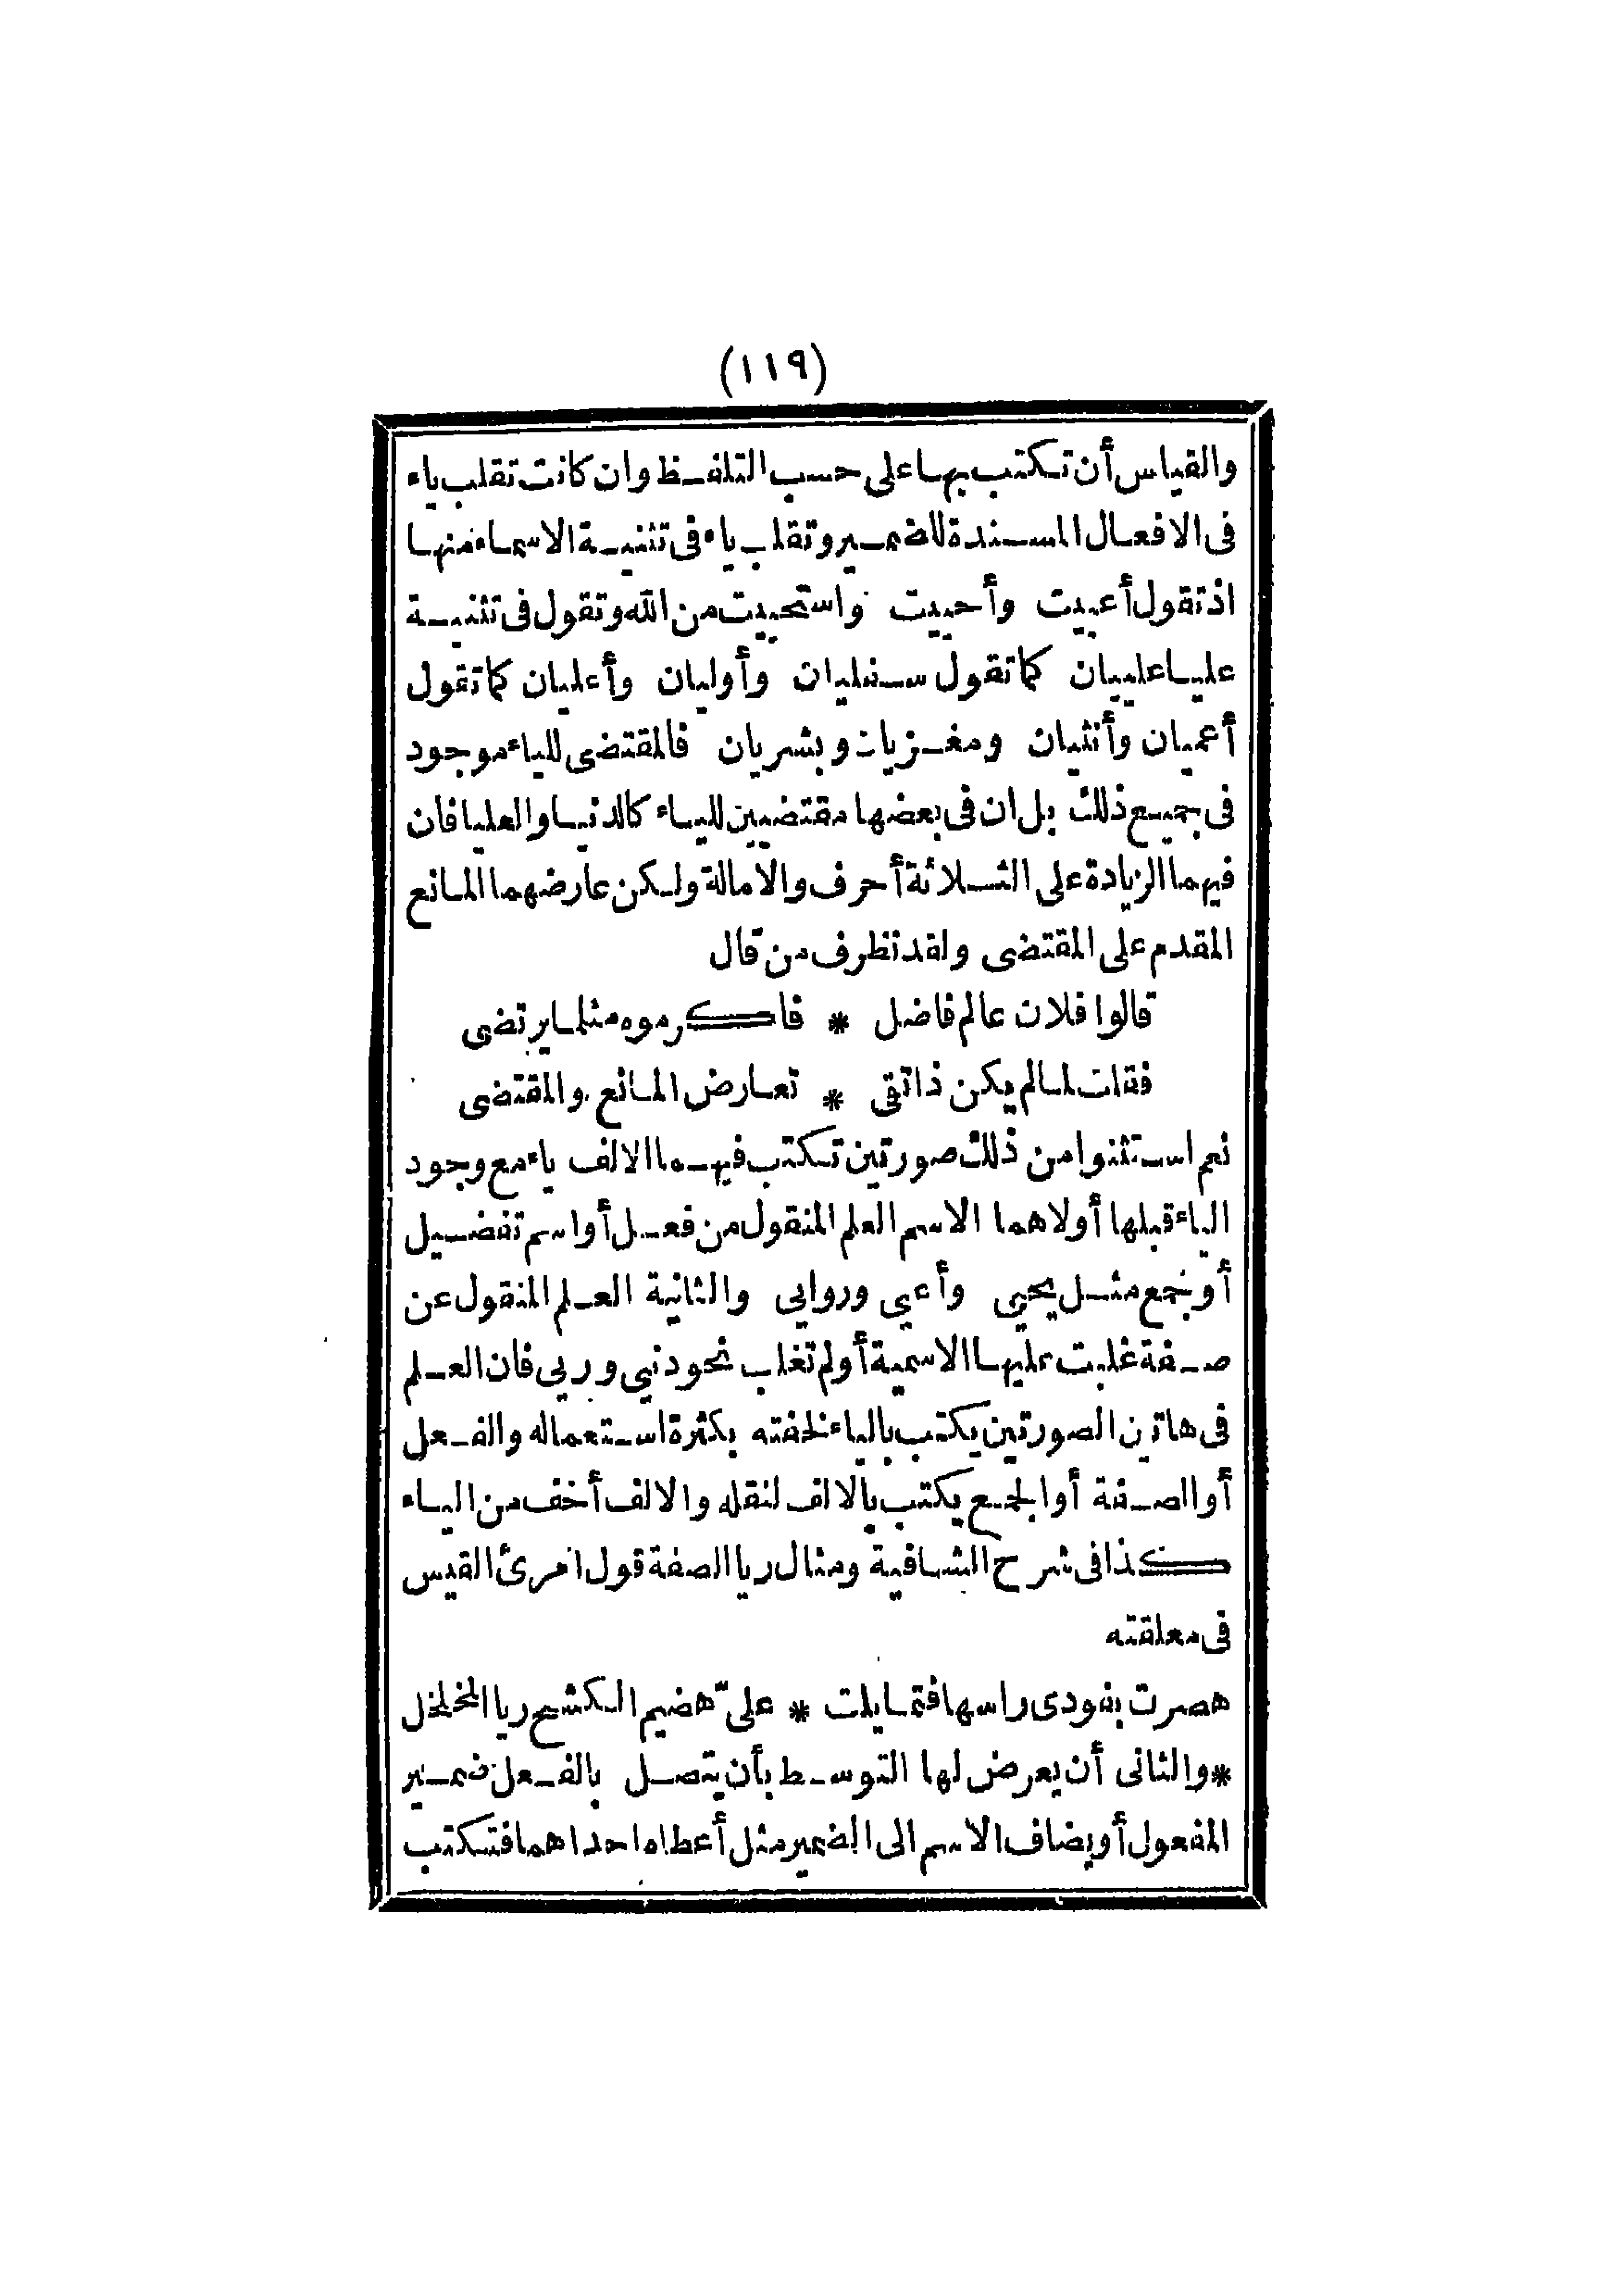 (١١٩)
والقياس أن تكتب بها على حسب التلفظ وان كانت تقلب ياء
فى الافعال المسندة للضمير وتقلب ياء فى تثنية الاسماء منها
اذ تقول أعييت وأحييت واستحييت من الله وتقول فى تثنية
عليا علييان كما تقول سفليان وأوليان وأعليان كما تقول
أعميان وأنثيان ومغزيان وبشريان فالمقتضى للياء موجود
فى جميع ذلك بل ان فى بعضها مقتضيين للياء كالدنيا والعليا فان
فيهما الزيادة على الثلاثة أحرف والامالة ولكن عارضهما المانع
المقدم على المقتضى ولقد تظرف من قال
قالوا فلان عالم فاضل * فاكرموه مثلما يرتضى
فقلت لما لم يكن ذا تقى * تعارض المانع والمقتضى
نعم استثنوا من ذلك صورتين تكتب فيهما الالف ياء مع وجود
الياء قبلها أولاهما الاسم العلم المنقول من فعل أو اسم تفضيل
أو جمع مثل يحيى وأعيى وروايى والثانية العلم المنقول عن
صفة غلبت عليها الاسمية أو لم تغلب نحو دنيى وريى فان العلم
فى هاتين الصورتين يكتب بالياء لخفته بكثرة استعماله والفعل
أو الصفة أو الجمع يكتب بالالف لثقله والالف أخف من الياء
كذا فى شرح الشافية ومثال ريا الصفة قول امرئ القيس
فى معلقته
هصرت بفودى راسها فتمايلت * علىّ هضيم الكشح ريا المخلخل
* والثانى أن يعرض لها التوسط بأن يتصل بالفعل ضمير
المفعول أو يضاف الاسم الى الضمير مثل أعطاه احداهما فتكتب